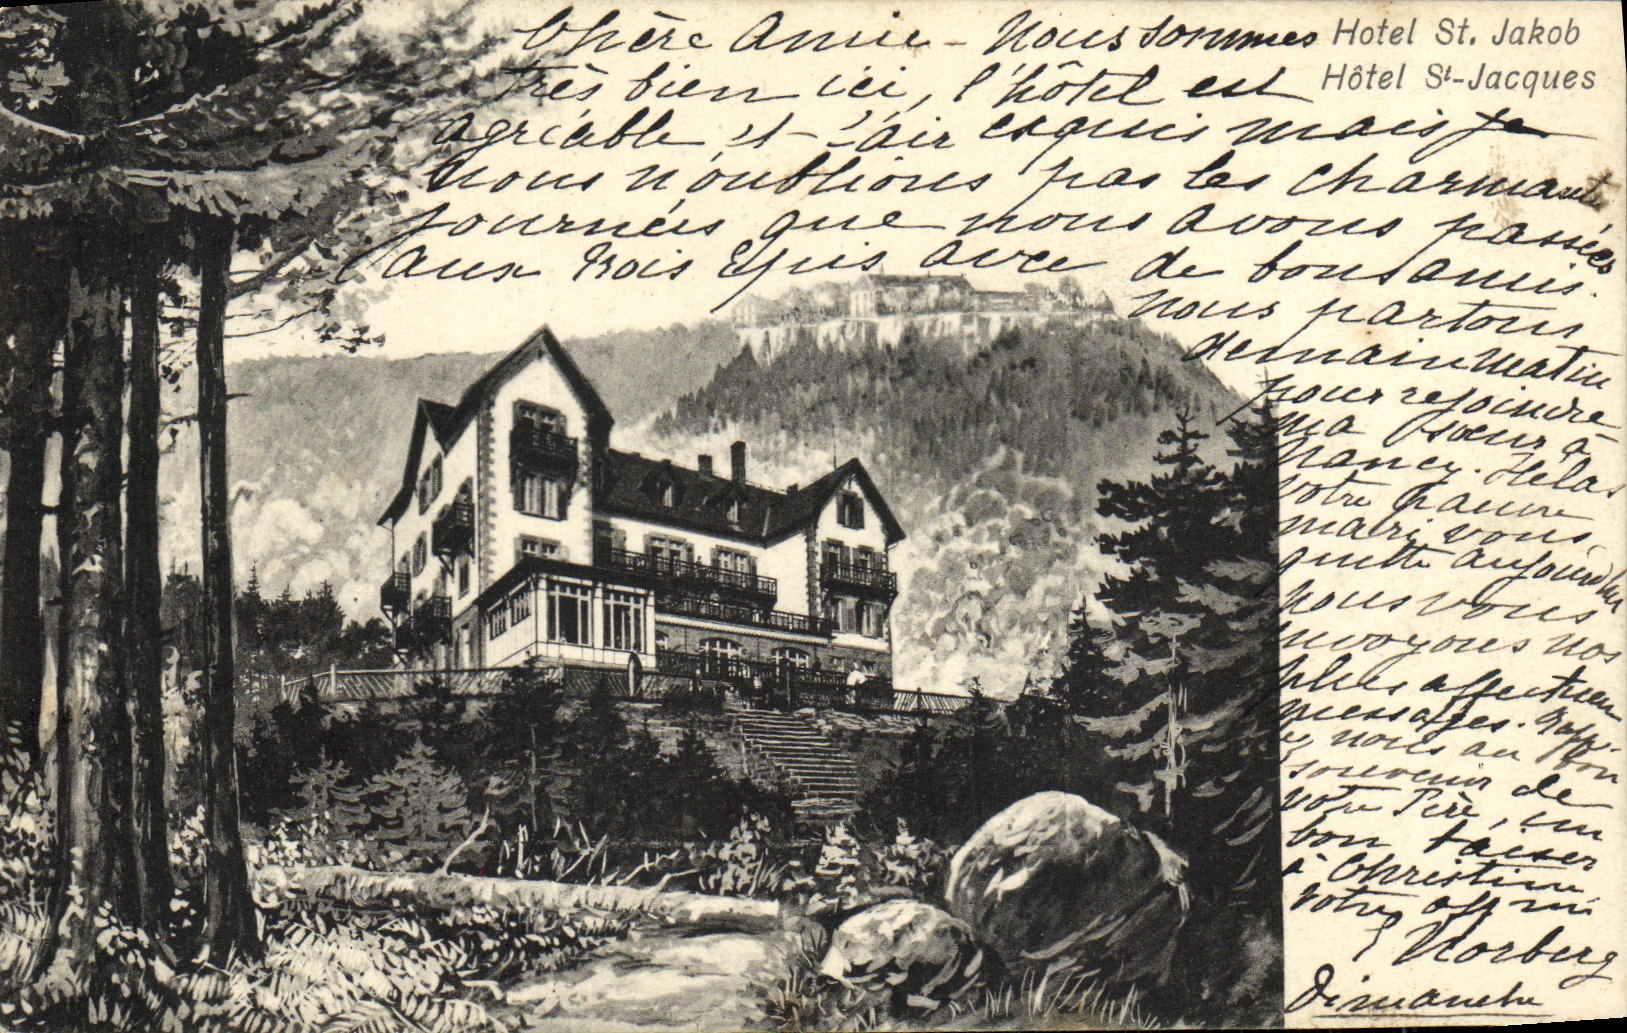 Hotel St. Jakob
Hôtel St-Jacques
Chère Amie - Nous sommes
très bien ici, l'hôtel est
agréable et l'air exquis mais je
nous n'oublions pas les charmantes
journées que nous avons passées
aux Trois Epis avec de bons amis.
nous partons
demain matin
pour rejoindre
ma sœur à
Nancy. Hélas
votre pauvre
mari vous
quitte aujourd'hui
nous vous
envoyons nos
plus affectueux
messages.
nous au bon
souvenir de
votre Père, un
bon baiser
à Christine
votre
Norberg
Dimanche